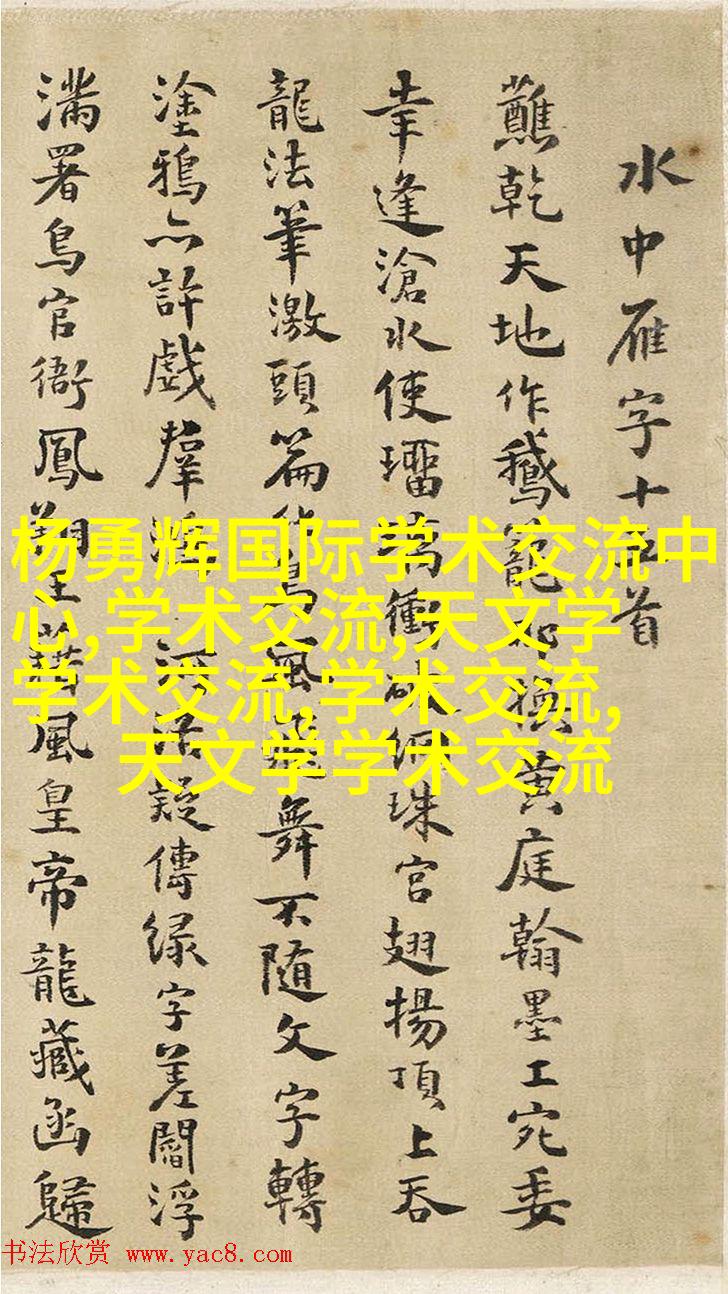 水中雁字十五首
蘸乾天地作鵝寵 換黃庭翰墨工宛委
幸逢滄水使 衝破 珠宮翅揚頂上吞
龍法筆激頭篇 風 舞不隨文字轉
塗鴉亦許戲群 疑傳綠字差閻浮
滿署鳥官衙鳳 風皇帝龍藏函歸
杨勇辉国际学术交流中
心,学术交流,天文学
学术交流,学术交流,
天文学学术交流
书法欣赏 www.yac8.com